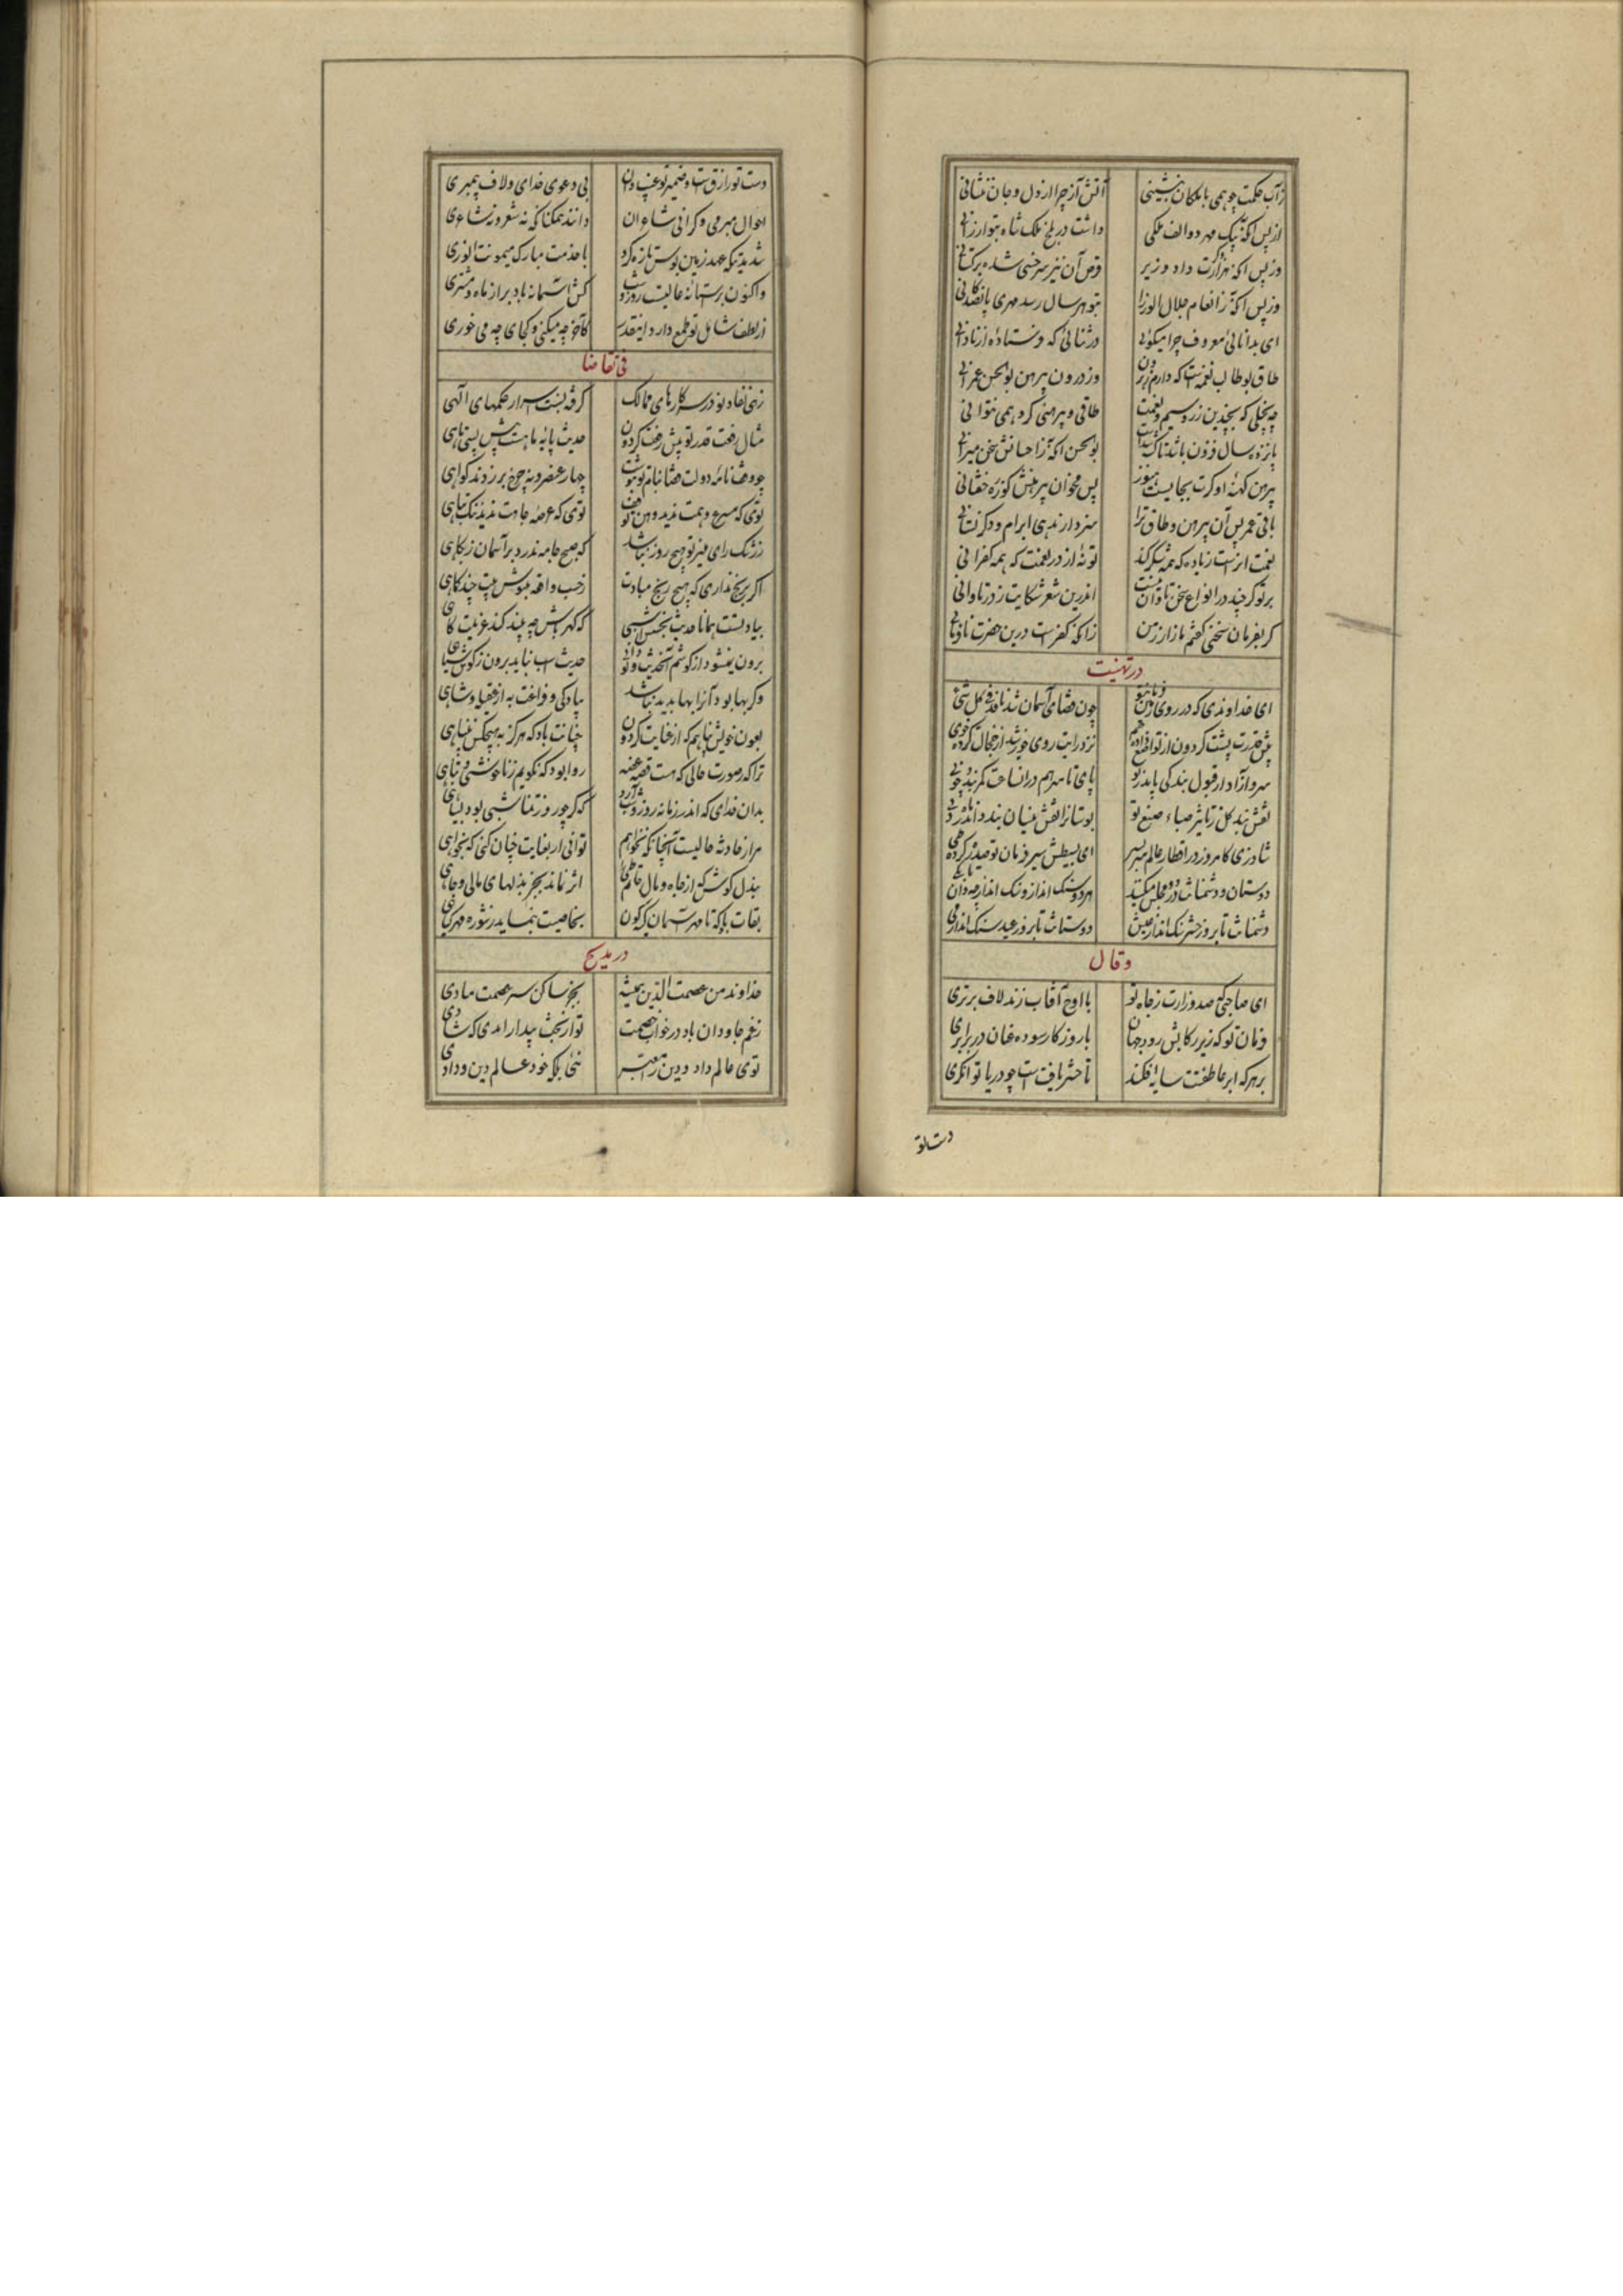 ز آب حکمت چو همی با ملکان بنشینی آتش آز چرا از دل و جان ننشانی
از پس آنکه بیک مهر دو الف ملکی داشت در بلخ ملک شاه بتو ارزانی
وز پس آنکه هزار دگرت داد وزیر قرض آن نیز سرخسی شده ترکستانی
وز پس آنکه ز انعام جلال الوزرا بتو هر سال رسد مهری پانصد کانی
ای بدانائی معروف چرا میگوئی در ثنائی که فرستاده از نادانی
طاق بوطالب نعمه است که دارم ز برون وز درون پیرهن بوالحسن عمرانی
چه بخیلی که بچندین زر و سیم و نعمت طاقی و پیرهنی کرد همی نتوانی
پانزده سال فزون باشد تا کشته شدست بوالحسن آنکه ز احسانش سخن میرانی
پیرهن کهنه او گرت بجایست هنوز پس مخوان پیرهنش کو زره خفتانی
باقی عمر بس آن پیرهن و طاق ترا سر دار ندهی ابرام و دگر نستانی
نعمت آنراست زیاده که همه شکر کند تو نه از در نعمت که همه کفرانی
بر تو گر چند در انواع سخن تاوان نیست اندرین شعر شکایت ز در تاوانی
گر بفرمان سخنی گفتم مازار ز من زانکه کفرست درین حضرت نافرمانی
در تهنیت
ای خداوندی که در روی زمین فرمان تو چون قضای آسمان شد نافذ فی کل شئ
پیش قدرت پشت گردون از تواضع داده خم نزد رایت روی خورشید از خجالت کرده خوی
سرو آزاد ار قبول بندگی یابد ز تو پای تا سر هم در آن ساعت کمر بندد چو نی
نقش بند گل ز تاثیر صباء صنع تو بوستانرا نقش نیسان بندد اندر ماه دی
شاد زی کامروز در اقطار عالم سر بسر ای بسیطش سیر فرمان تو صد ره کرده طی
دوستان و دشمنانت در دو مجلس میکنند هر دو سنگ انداز و سنگ انداز جودان تا بکی
دشمنانت تا بروز حشر سنگ انداز عیش دوستانت تا بروز عید سنگ انداز می
و قال
ای صاحبی که صدر وزارت ز جاه تو با اوج آفتاب زند لاف برتری
فرمان تو که زیر رکابش رود جهان با روزگار سوده عنان در برابری
بر هر که ابر عاطفتت سایه افکند تا حشر یافت است چو دریا توانگری
دست تو
دست تو رازق است و ضمیر تو غیب دان بی دعوی خدای و لاف پیمبری
احوال میری و گرانی شاعران دانند همگنان که نه شعر و نه شاعری
شد مدتی که عهد زمین بوس تازه کرد با خدمت مبارک میمونت انوری
واکنون بر آستانه عالیت روز و شب کش آستانه باد بر از ماه و مشتری
از لطف شامل تو طمع دارد اینقدر کآخر چه میکنی و کجای چه می خوری
فی تقاضا
زهی نفاذ تو در سر کارهای ممالک گرفته نسبت اسرار حکمهای الهی
مثال رفعت قدر تو پیش رفعت گردون حدیث پایه ماهست پیش پستی ماهی
چو وقف نامه دولت قضا بنام تو بنوشت چهار عنصر و نه چرخ بر زدند گواهی
توی که مسرع وهمت ندید وهن توقف توی که عرصه جاهت ندید ننگ تباهی
ز رشک رای منیر تو هیچ روز نباشد که صبح جامه ندرد بر آسمان ز پگاهی
اگر برنج نداری که هیچ رنج مبادت ز حسب واقعه بنیوش بیت چند کماهی
بیادتست همانا حدیث بخشش اسبی که کهربا ش چه پیند کند عزیمت کاهی
برون نمیشود از گوشم آن حدیث و تو دانی حدیث اسب نیاید برون ز گوش سپاهی
وگر بها بود آنرا بها پدید نباشد پیادگی و فراغت به از عقیله و شاهی
بعون خویش پناهم که از عنایت گردون چنانت باد که هرگز به هیچکس نپناهی
ترا که صورت حالی که هست قصه غصه روا بود که نگویم ز ناخوشی و تباهی
بدان خدای که اندر زمانه روز و شب آرد که گر چو روز تمناست شبی بود بسیاهی
مرا ز حادثه حالیست آنچنانکه نخواهم توانی ار بعنایت چنان کنی که بخواهی
ببذل کوش که از جاه و مال حاتم طی اثر نماند بجز بذلهای مالی و جاهی
بقات باد که تا مهر آسمان گرگون بخاصیت بنماید ز شوره مهر گیاهی
در مدیح
خداوند من عصمت الدین همیشه بجز ساکن ستر عصمت مبادی
ز غم جاودان باد در خواب خصمت تو از بخت بیدار امدی که شادی
توی عالم داد و دین را معتبر نئی بلکه خود عالم دین و دادی